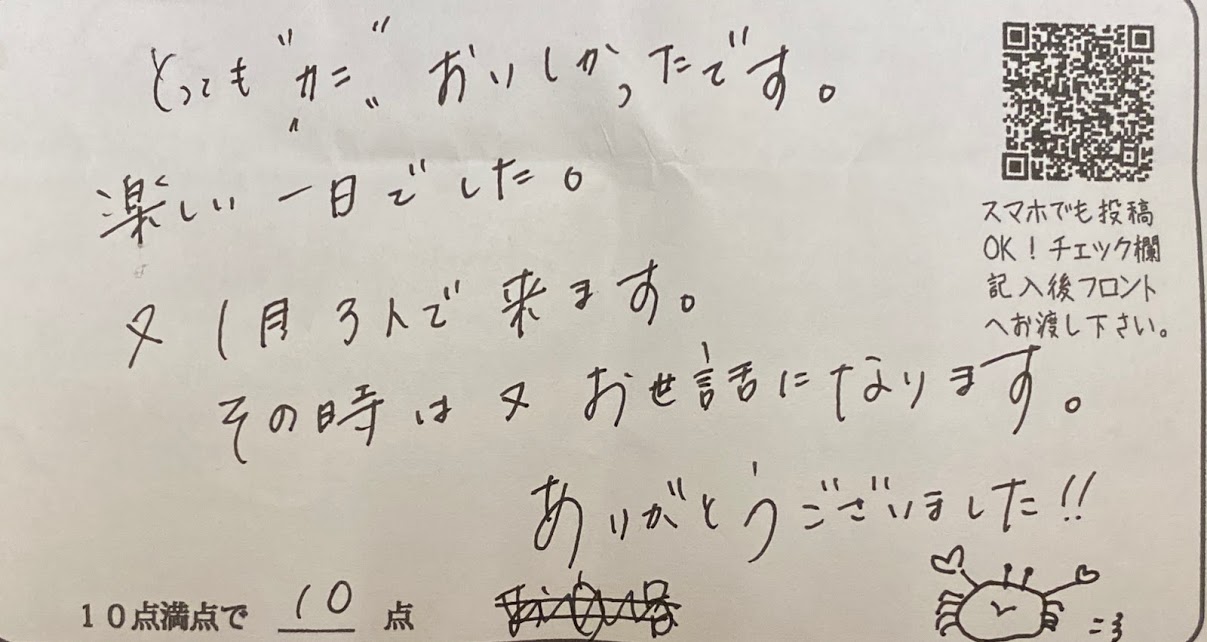 とっても〝カニ〟おいしかったです。
楽しい一日でした。
又 1月 3人で来ます。
その時は又 お世話になります。
ありがとうございました!!
10点満点で 10 点
スマホでも投稿
OK!チェック欄
記入後フロント
へお渡し下さい。